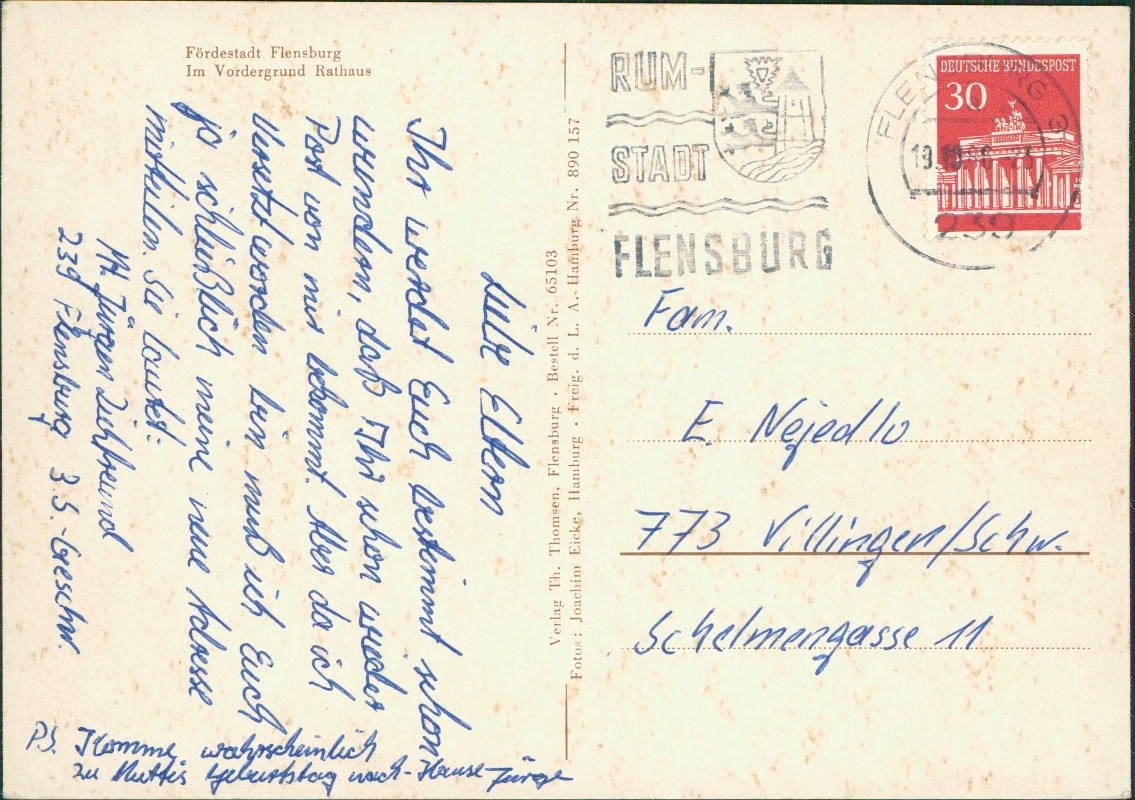 Fördestadt Flensburg
Im Vordergrund Rathaus
Liebe Eltern
Ihr werdet Euch bestimmt schon
wundern, daß Ihr schon wieder
Post von mir bekommt. Aber da ich
versetzt worden bin muß ich Euch
ja schließlich meine neue Adresse
mitteilen. Sie lautet:
Jürgen
239 Flensburg 3.S.-Geschw.
P.S. Komme wahrscheinlich
zu Muttis Geburtstag nach Hause
Verlag Th. Thomsen, Flensburg · Bestell Nr. 65103
Fotos: Joachim Eicke, Hamburg · Freig. d. L. A.-Hamburg Nr. 890 157
RUM-
STADT
FLENSBURG
FLENSBURG 3
239
DEUTSCHE BUNDESPOST
30
Fam.
E. Nejedlo
773 Villingen/Schw.
Schelmengasse 11